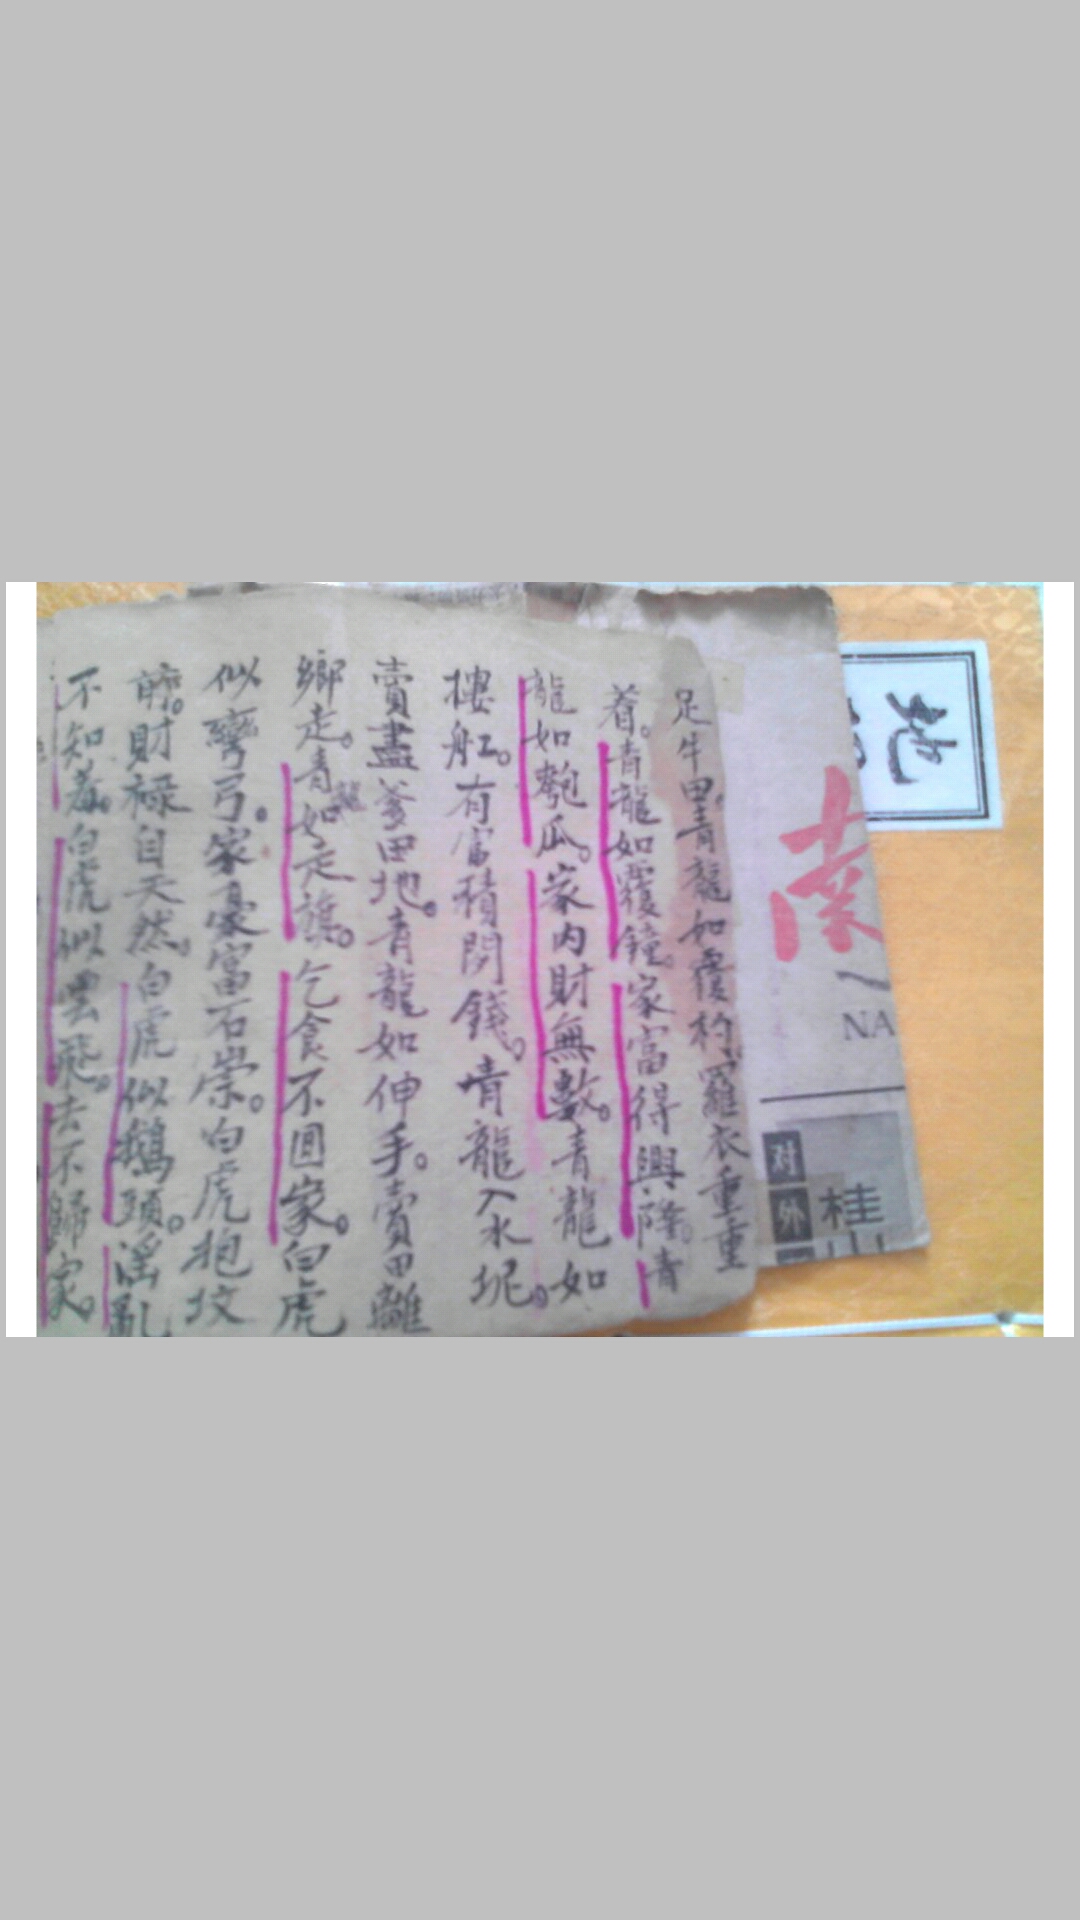 足牛田。青龍如覆杓。羅衣重重
着。青龍如覆鐘。家富得興隆。青
龍如匏瓜。家内財無數。青龍如
摟舡。有富積閉錢。青龍入水坭。
賣盡爹田地。青龍如伸手。賣田離
鄉走。青龍如走旗。乞食不囬家。白虎
似彎弓。家豪富石崇。白虎抱坟
前。財禄自天然。白虎似鵝頭。滛亂
不知羞。白虎似雲飛。去不歸家。
南
NA
对
外
桂